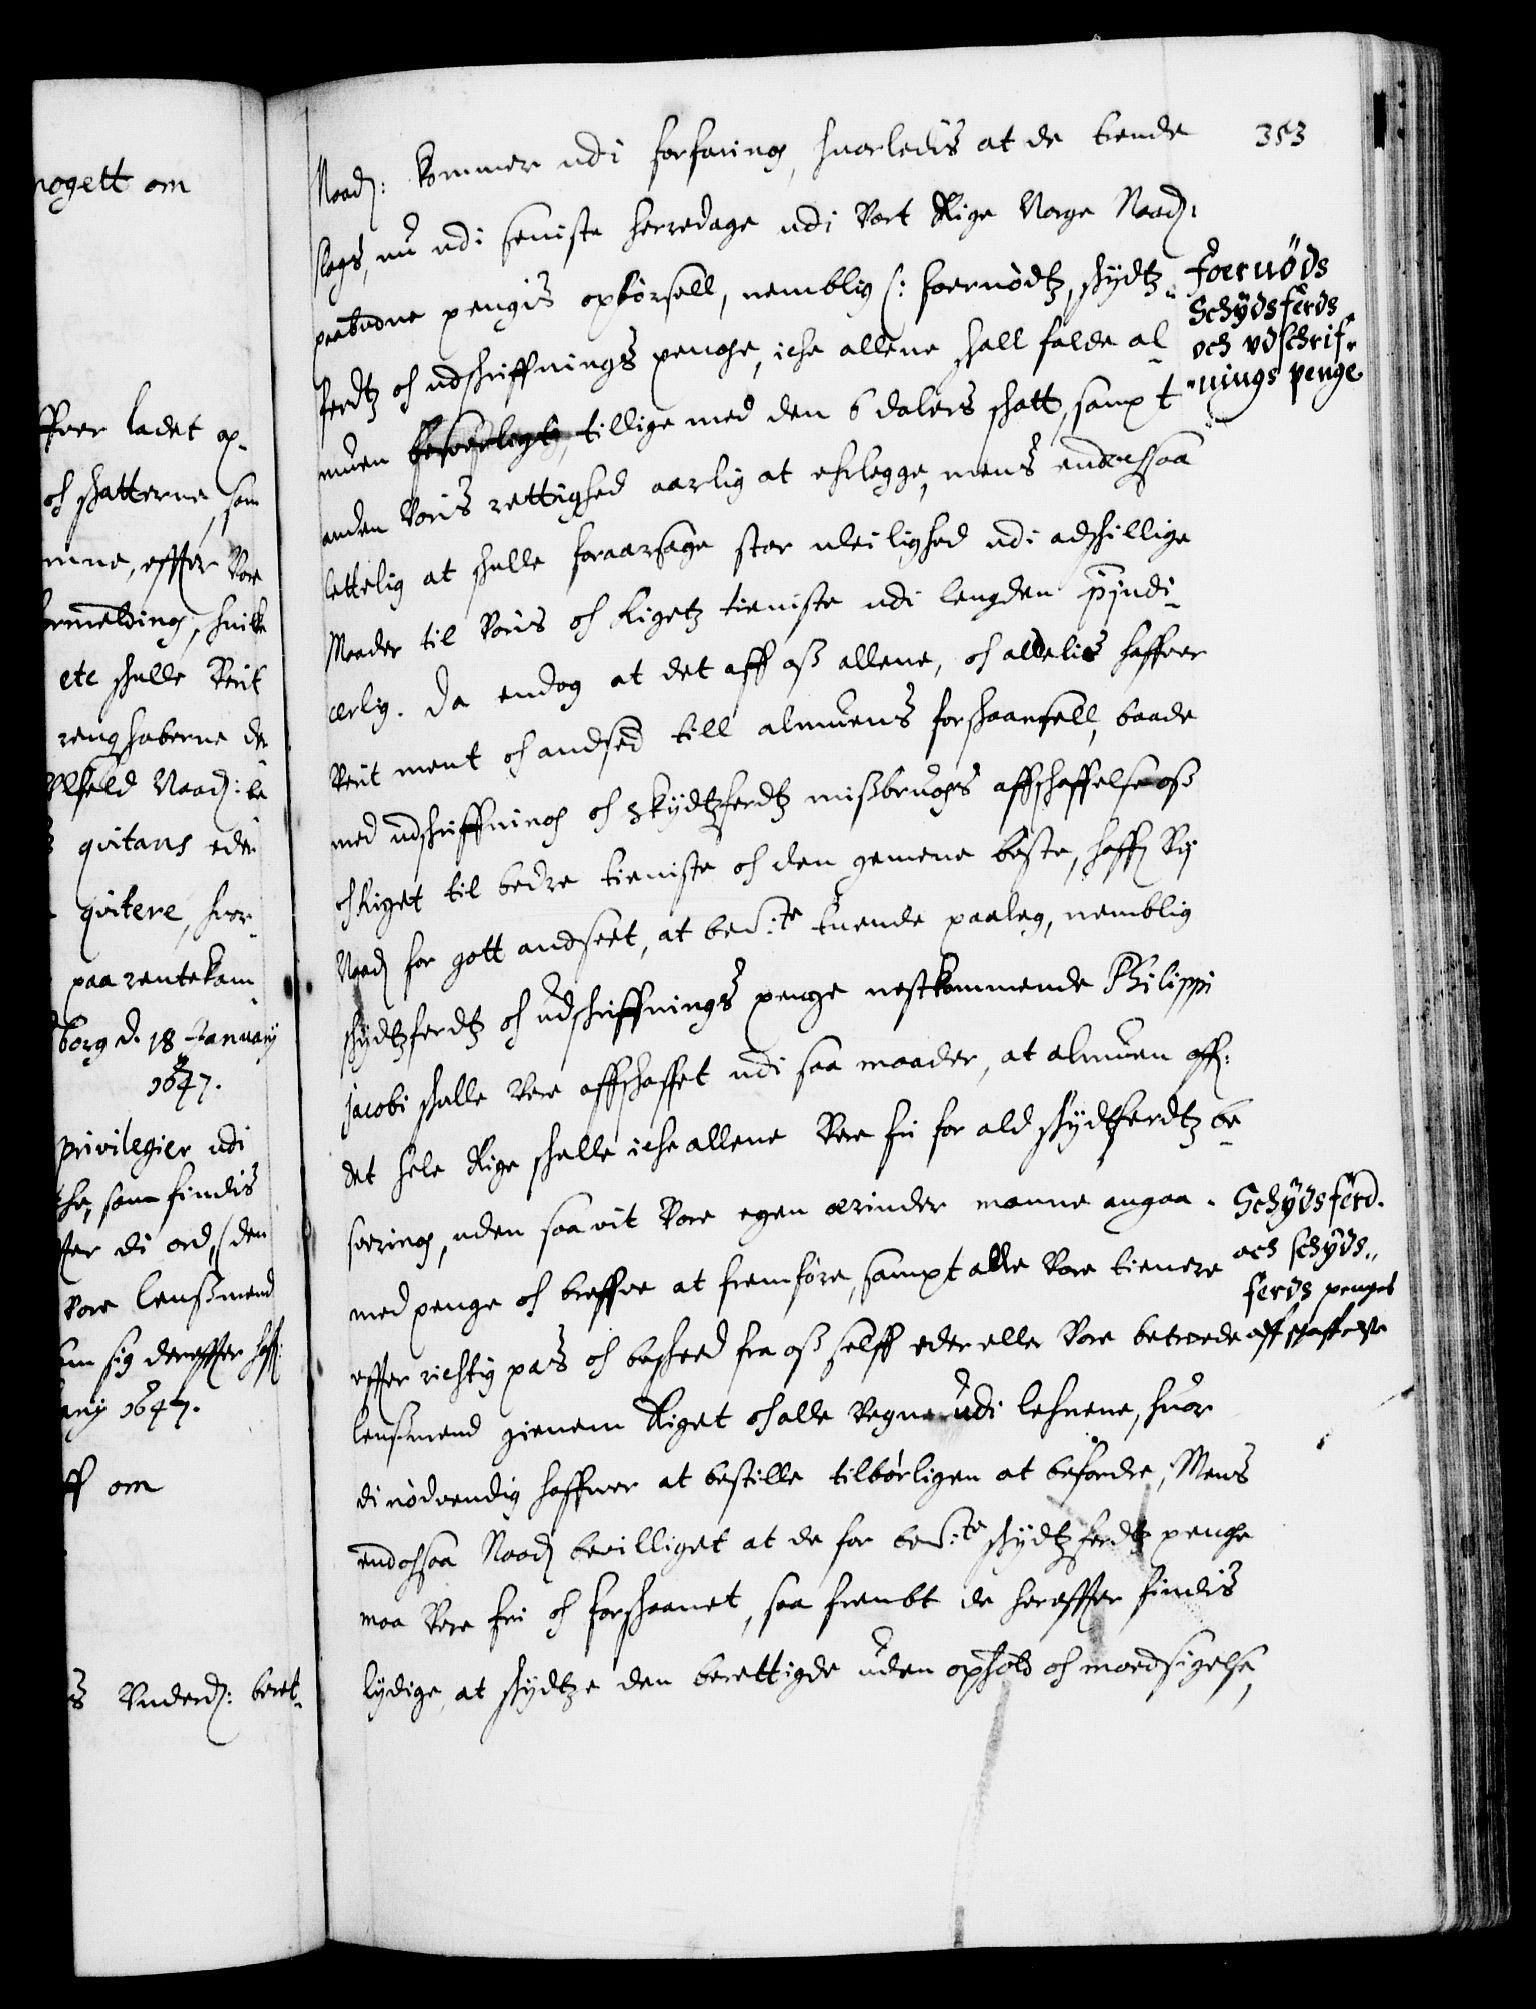 nogett om
ffver ladet op-
och skatterne, som
inne, effter Vore
formelding, huilke
etc skulle Verit
rengskaberne de
Ulfeld Naadʒ: be
qvitans eder
qvitere, huor-
paa rentekam-
borg d. 18 January
1647.
privilegier udi
som findis
effter di ord, (den
Vore lensmend
sig dereffter haffʒ:
1647.
om
Underdʒ: beret-
353
Naadʒ: kommer udi forfaring, huorledis at de tiende
slags, nu udi seniste herredage udi Vort Rige Norge Naadʒ:
paabudne pengis opbørsell, nemblig (: foernødtz, skydtz-
ferdtz och udskriffnings penge, iche allene skall falde al-
muen besverligt, tillige med den 6 dalers skatt, sampt
anden Voris rettighed aarlig at erlegge, mens endochsaa
lettelig at skulle foraarsage stor uleilighed udi adskillige
Maader til Voris och Rigetz tieniste udi lengden
ærlig. Da endog at det aff oss allene, och aldelis haffver
Verit ment och andsed till almuens forskaansell, baade
med udskriffning och skydtzferdtz missbrugs affskaffelse oss
och Riget til bedre tieniste och den gemene beste, haffʒ Vij
Naadʒ for gott andseet, at be:te tuende paaleg, nemblig
skydtzferdtz och udskriffnings penge nestkommende Philippi
Jacobi skulle Vere affskaffet udi saa maader, at almuen offʒ:
det hele Rige skulle iche allene Vere fri for ald skydtzferdtz be-
svering, uden saavit Vore egen ærinder monne angaa,
med penge och breffve at fremføre, sampt alle Vore tienere
effter richtig pas och beskeed fra oss selff eder eller Vore betroede
lensmend gienem Riget och alle Vegne udi lehnene, huor
di nødvendig haffver at bestille tilbørligen at befordre, Mens
endochsaa Naadʒ bevilliget at de for be:te skydtzferdtz penge
maa Vere fri och forskaanet, saa frembt de hereffter findis
lydige, at skydtze den berettigde uden ophold och modsigelse,
Foernöds
Schÿdsferds
och vdschrif-
nings penge
Schÿdsferd
och schÿds-
ferds penges
affskaffelse